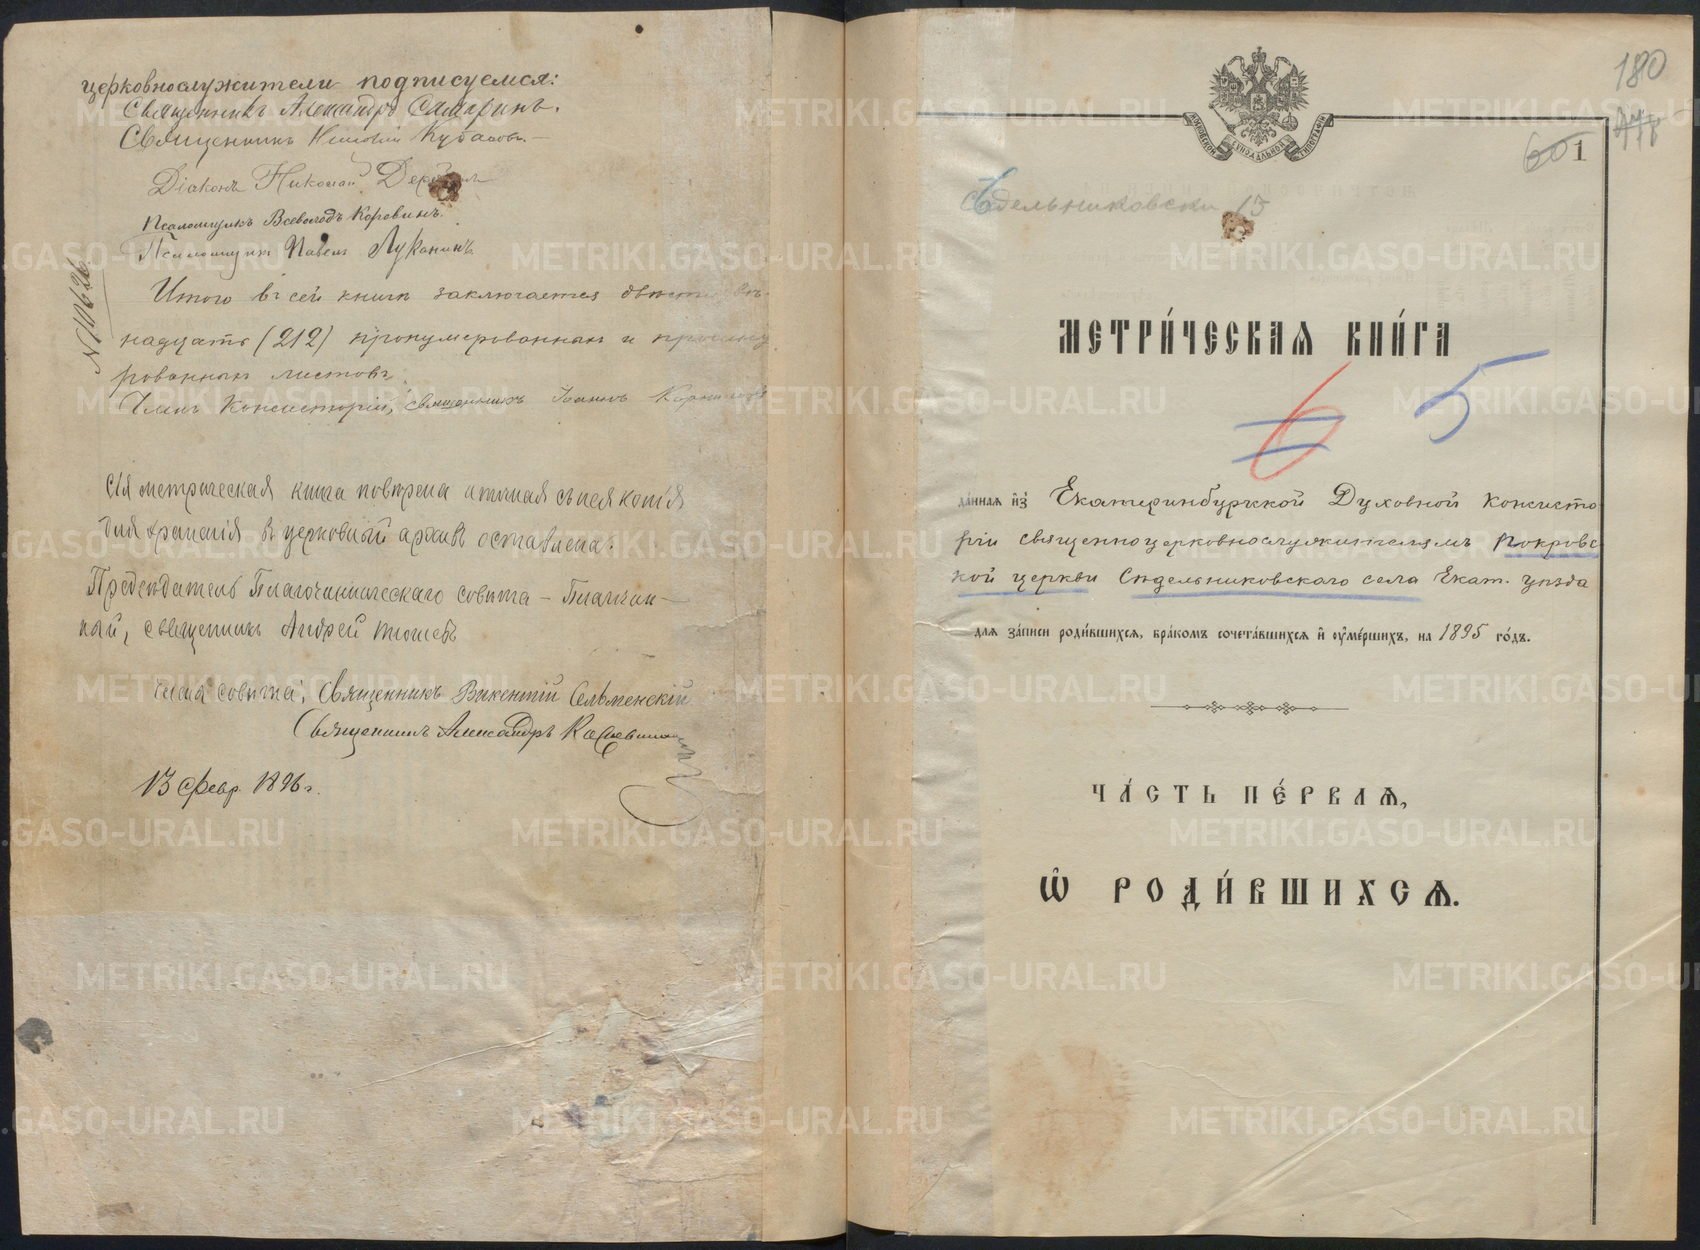 церковнослужители подписуемся:
Священникъ Александръ Сапаринъ.
Священникъ Кубасовъ.
Діаконъ Николай
Псаломщикъ Всеволодъ Коровинъ.
Псаломщикъ Павелъ Луканинъ
№ 10626.
Итого въ сей книгѣ заключается двѣсти двѣ-
надцать (212) пронумерованныхъ и прошну
рованныхъ листовъ.
Членъ Консисторіи, священникъ Іоаннъ
Сія метрическая книга повѣрена и точная съ нея копія
для храненія въ церковный архивъ оставлена.
Предсѣдатель Благочинническаго совѣта – Благочин-
ный, священникъ Андрей
Члены совѣта: Священникъ Викентій Сельменскій
Священникъ Александръ
13 февр. 1896 г.
180
МОСКОВСКОЙ СѴНОДАЛЬНОЙ ТИПОГРАФІИ
60
1
Сѣдельниковски 15
МЕТРИ́ЧЕСКАѦ КНИ́ГА
6 5
да́ннаѧ и҆з̾ Екатеринбургской Духовной Консисто
ріи священноцерковнослужителямъ Покровс
кой церкви Сѣдельниковскаго села Екат. уѣзда
для за́писи роди́вшихсѧ, бра́комъ сочета́вшихсѧ и҆ ᲂу҆ме́ршихъ, на 1895 го́дъ.
ЧА́СТЬ ПЕ́РВАѦ,
Ѡ҆ РОДИ́ВШИХСѦ.
METRIKI.GASO-URAL.RU